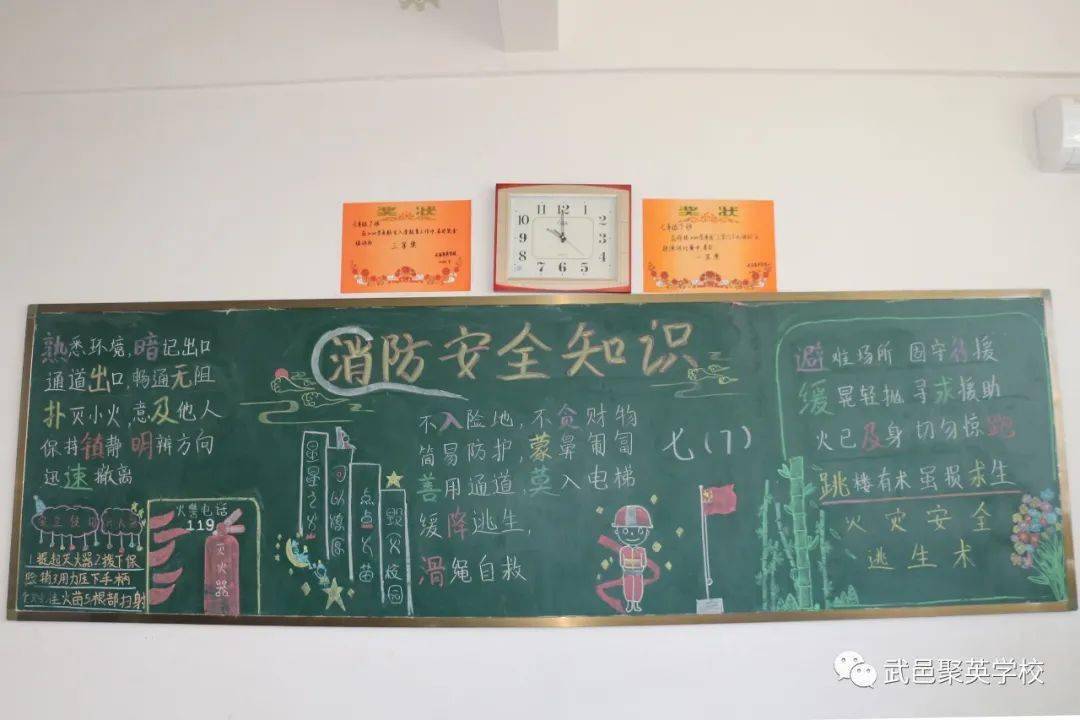 奖状
七年级7班
三等奖
奖状
七年级7班
一等奖
12
1
2
3
4
5
6
7
8
9
10
11
消防安全知识
熟悉环境,暗记出口
通道出口,畅通无阻
扑灭小火,惠及他人
保持镇静 明辨方向
迅速撤离
1提起灭火器2拔下保
险销3用力压下手柄
准火苗5根部扫射
火警电话
119
灭火器
星星之火
可以燎原
点点火苗
毁灭校园
不入险地,不贪财物
简易防护,蒙鼻匍匐
善用通道,莫入电梯
缓降逃生,
滑绳自救
七(7)
避难场所 固守待援
缓晃轻抛 寻求援助
火已及身 切勿惊跑
跳楼有术 虽损求生
火灾安全
逃生术
武邑聚英学校